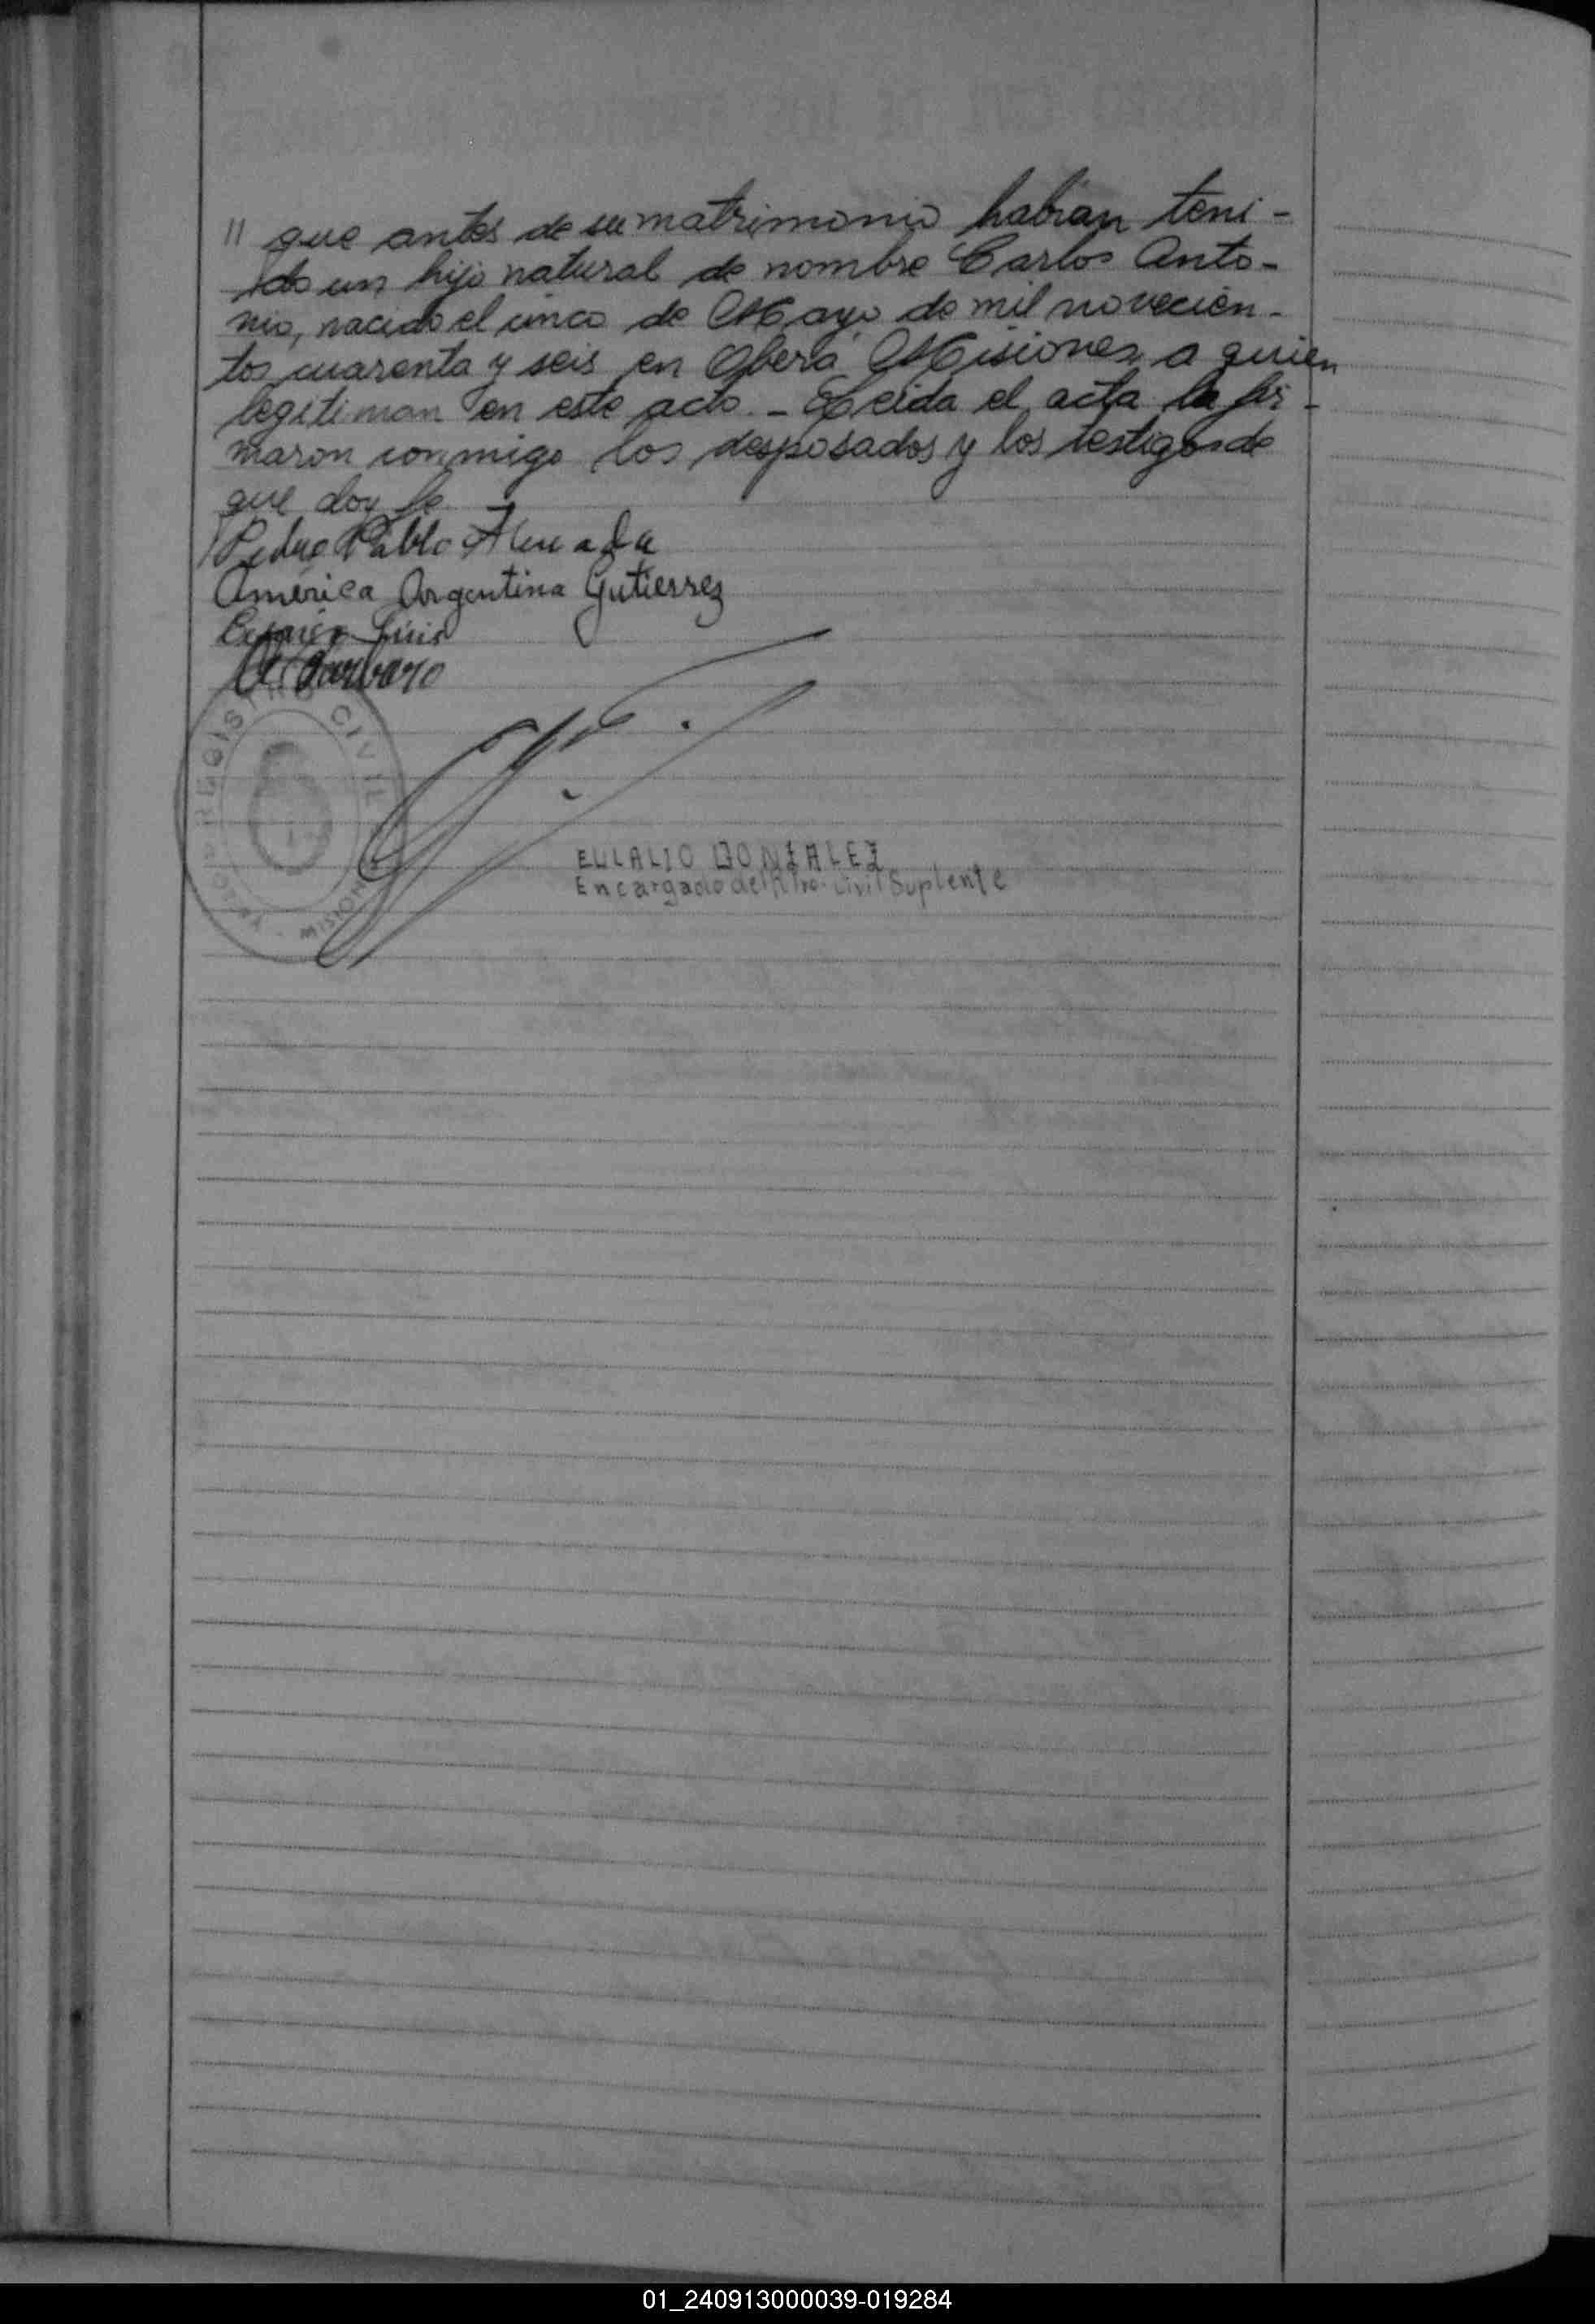 " que antes de su matrimonio habian teni-
do un hijo natural de nombre Carlos Anto-
nio, nacido el cinco de Mayo de mil novecien-
tos cuarenta y seis en Oberá Misiones a quien
legitiman en este acto. - Leida el acta la fir-
maron conmigo los desposados y los testigos de
que doy fe
Pedro Pablo
América Argentina Gutierrez
Luis
REGISTRO CIVIL
MISIONES
EULALIO GONZALEZ
Encargado del Rtro. Civil Suplente
01_240913000039-019284